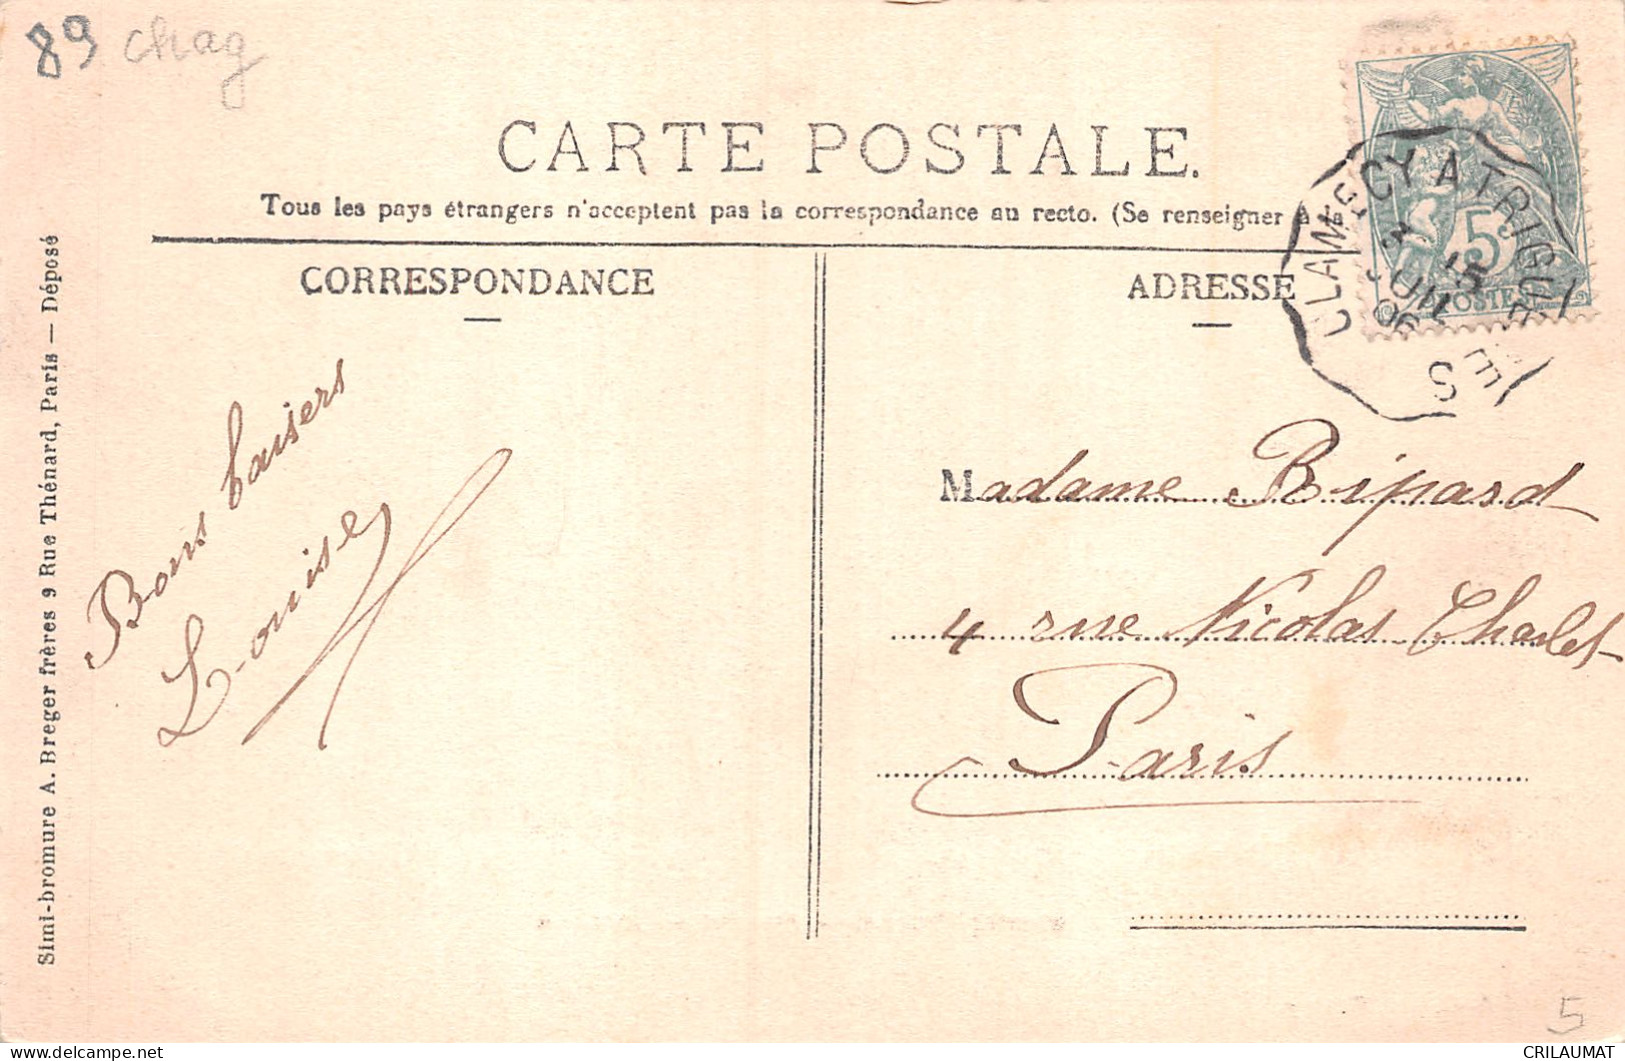 89 chag
CARTE POSTALE.
Tous les pays étrangers n'acceptent pas la correspondance au recto. (Se renseigner à la
CORRESPONDANCE
ADRESSE
CLAMECY A TRIGUERES
15
JUIN
06
5
POSTES
Simi-bromure A. Breger frères 9 Rue Thénard, Paris — Déposé
Bons baisers
Louise
Madame Ripard
4 rue Nicolas Charlet
Paris
5
CRILAUMAT